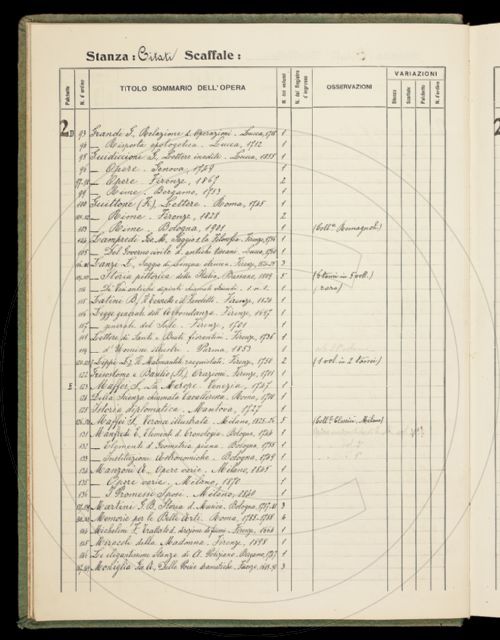 Stanza: Citati Scaffale: 3
Palchetto N. d'ordine TITOLO SOMMARIO DELL'OPERA N. dei volumi N. del Registro d'ingresso OSSERVAZIONI VARIAZIONI Stanza Scaffale Palchetto N. d'ordine
2D
93 Grandi G. Relazione d. operazioni. Lucca, 1 
94 — Risposta apologetica. Lucca, 1712 1
95 Guidiccioni G. Lettere inedite. Lucca, 1855 1
96 — Opere. Genova, 1749 1
97-98 — Opere. Firenze, 1867 2
99 — Rime. Bergamo, 1753 1
100 Guittone (Fr.) Lettere. Roma, 1745 1
101-102 — Rime. Firenze, 1828 2
103 — Rime. Bologna, 1901 1 (Coll.e Romagnoli)
104 Lampredi Gio. M. Saggio s. la Filosofia. Firenze, 1
105 — Del Governo civile d. antichi toscani. Lucca, 1760 1
Lanzi L. Saggio di Lingua etrusca. Firenze, 3
— Storia pittorica della Italia. Bassano, 1809 5 (6 tomi in 5 voll.)
114 — De' Vasi antichi dipinti chiamati Etruschi. s. n. t. 1 (raro)
115 Latini B. Il Tesoretto e il Favoletto. Firenze, 1824 1
116 Legge generale dell'Abbondanza. Firenze, 1697 1
117 — generale del Sale. Firenze, 1701 1
118 Lettere di Santi e Beati fiorentini. Firenze, 1736 1
119 — d'Uomini illustri. Parma, 1853 1
120-121 Lippi L. Il Malmantile racquistato. Firenze, 1750 2 (1 vol. in 2 tomi)
122 Grisostomo e Basilio (S.) Orazioni. Firenze, 1
E 123 Maffei S. La Merope. Venezia, 1747 1
124 — Della Scienza chiamata Cavalleresca. Roma, 1710 1
125 — Istoria diplomatica. Mantova, 1727 1
Maffei S. Verona illustrata. Milano, 1825-26 5 (Coll.e Classici, Milano)
131 Manfredi E. Elementi d. Cronologia. Bologna, 1744 1
132 — Elementi d. Geometria piana. Bologna, 1755 1
133 — Instituzioni Astronomiche. Bologna, 1749 1
134 Manzoni A. Opere varie. Milano, 1845 1
135 — Opere varie. Milano, 1870 1
136 — I Promessi Sposi. Milano, 1840 1
Martini G. B. Storia d. Musica. Bologna, 3
Memorie per le Belle Arti. Roma, 1785-1788 4
144 Micheloni P. Trattato d. direzione de' fiumi. Firenze, 1664 1
145 Miracoli della Madonna. Firenze, 1
146 Le elegantissime Stanze di A. Poliziano. Bergamo, 1747 1
Moniglia Gio. A. Delle Poesie dramatiche. Firenze, 3